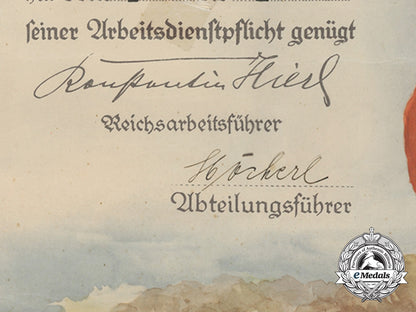 seiner Arbeitsdienstpflicht genügt
Konstantin Hierl
Reichsarbeitsführer
Höckerl
Abteilungsführer
eMedals